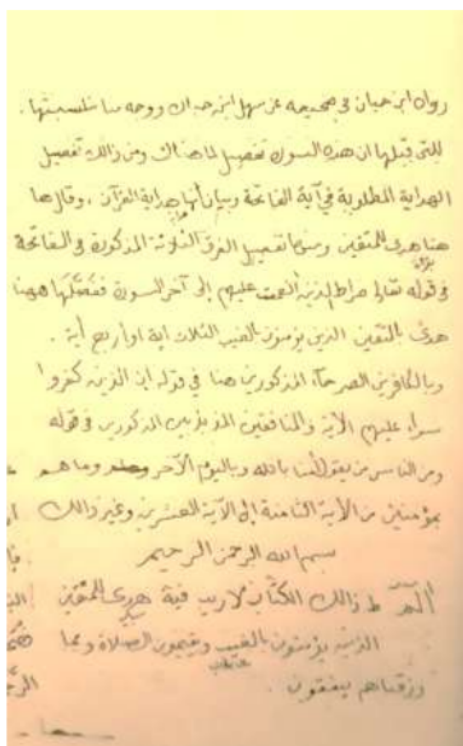 رواه ابن حبان في صحيحه عن سهل ابن ووجه مناسبتها .
للتى قبلها ان هذه السورة تفصيل لما هناك ومن ذالك تفصيل
الهداية المطلوبة في آية الفاتحة وبيان أنها هداية القرآن ، وقال ها
هنا هدى للمتقين ومنها تفصيل الفرق الثلاثة المذكورة في الفاتحة
في قوله تعالى صراط الذين أنعمت عليهم إلى آخر السورة ففصَّلَها ههنا
هدى بالمتقين الذين يؤمنون بالغيب الثلاث اية اوأربع أية .
وبالكافرين الصرحاء المذكورين هنا في قوله ان الذين كفروا
سواء عليهم الآية والمنافقين المذبذبين المذكورين في قوله
ومن الناس من يقول أمنا بالله وباليوم الآخر وما هم
بمؤمنين من الأية الثامنة إلى الآية العشرين وغير ذالك
بسم الله الرحمن الرحيم
الم ط ذالك الكتاب لاريب فية هدى للمتقين
الذين يؤمنون بالغيب ويقيمون الصلاة ومما
رزقناهم ينفقون .